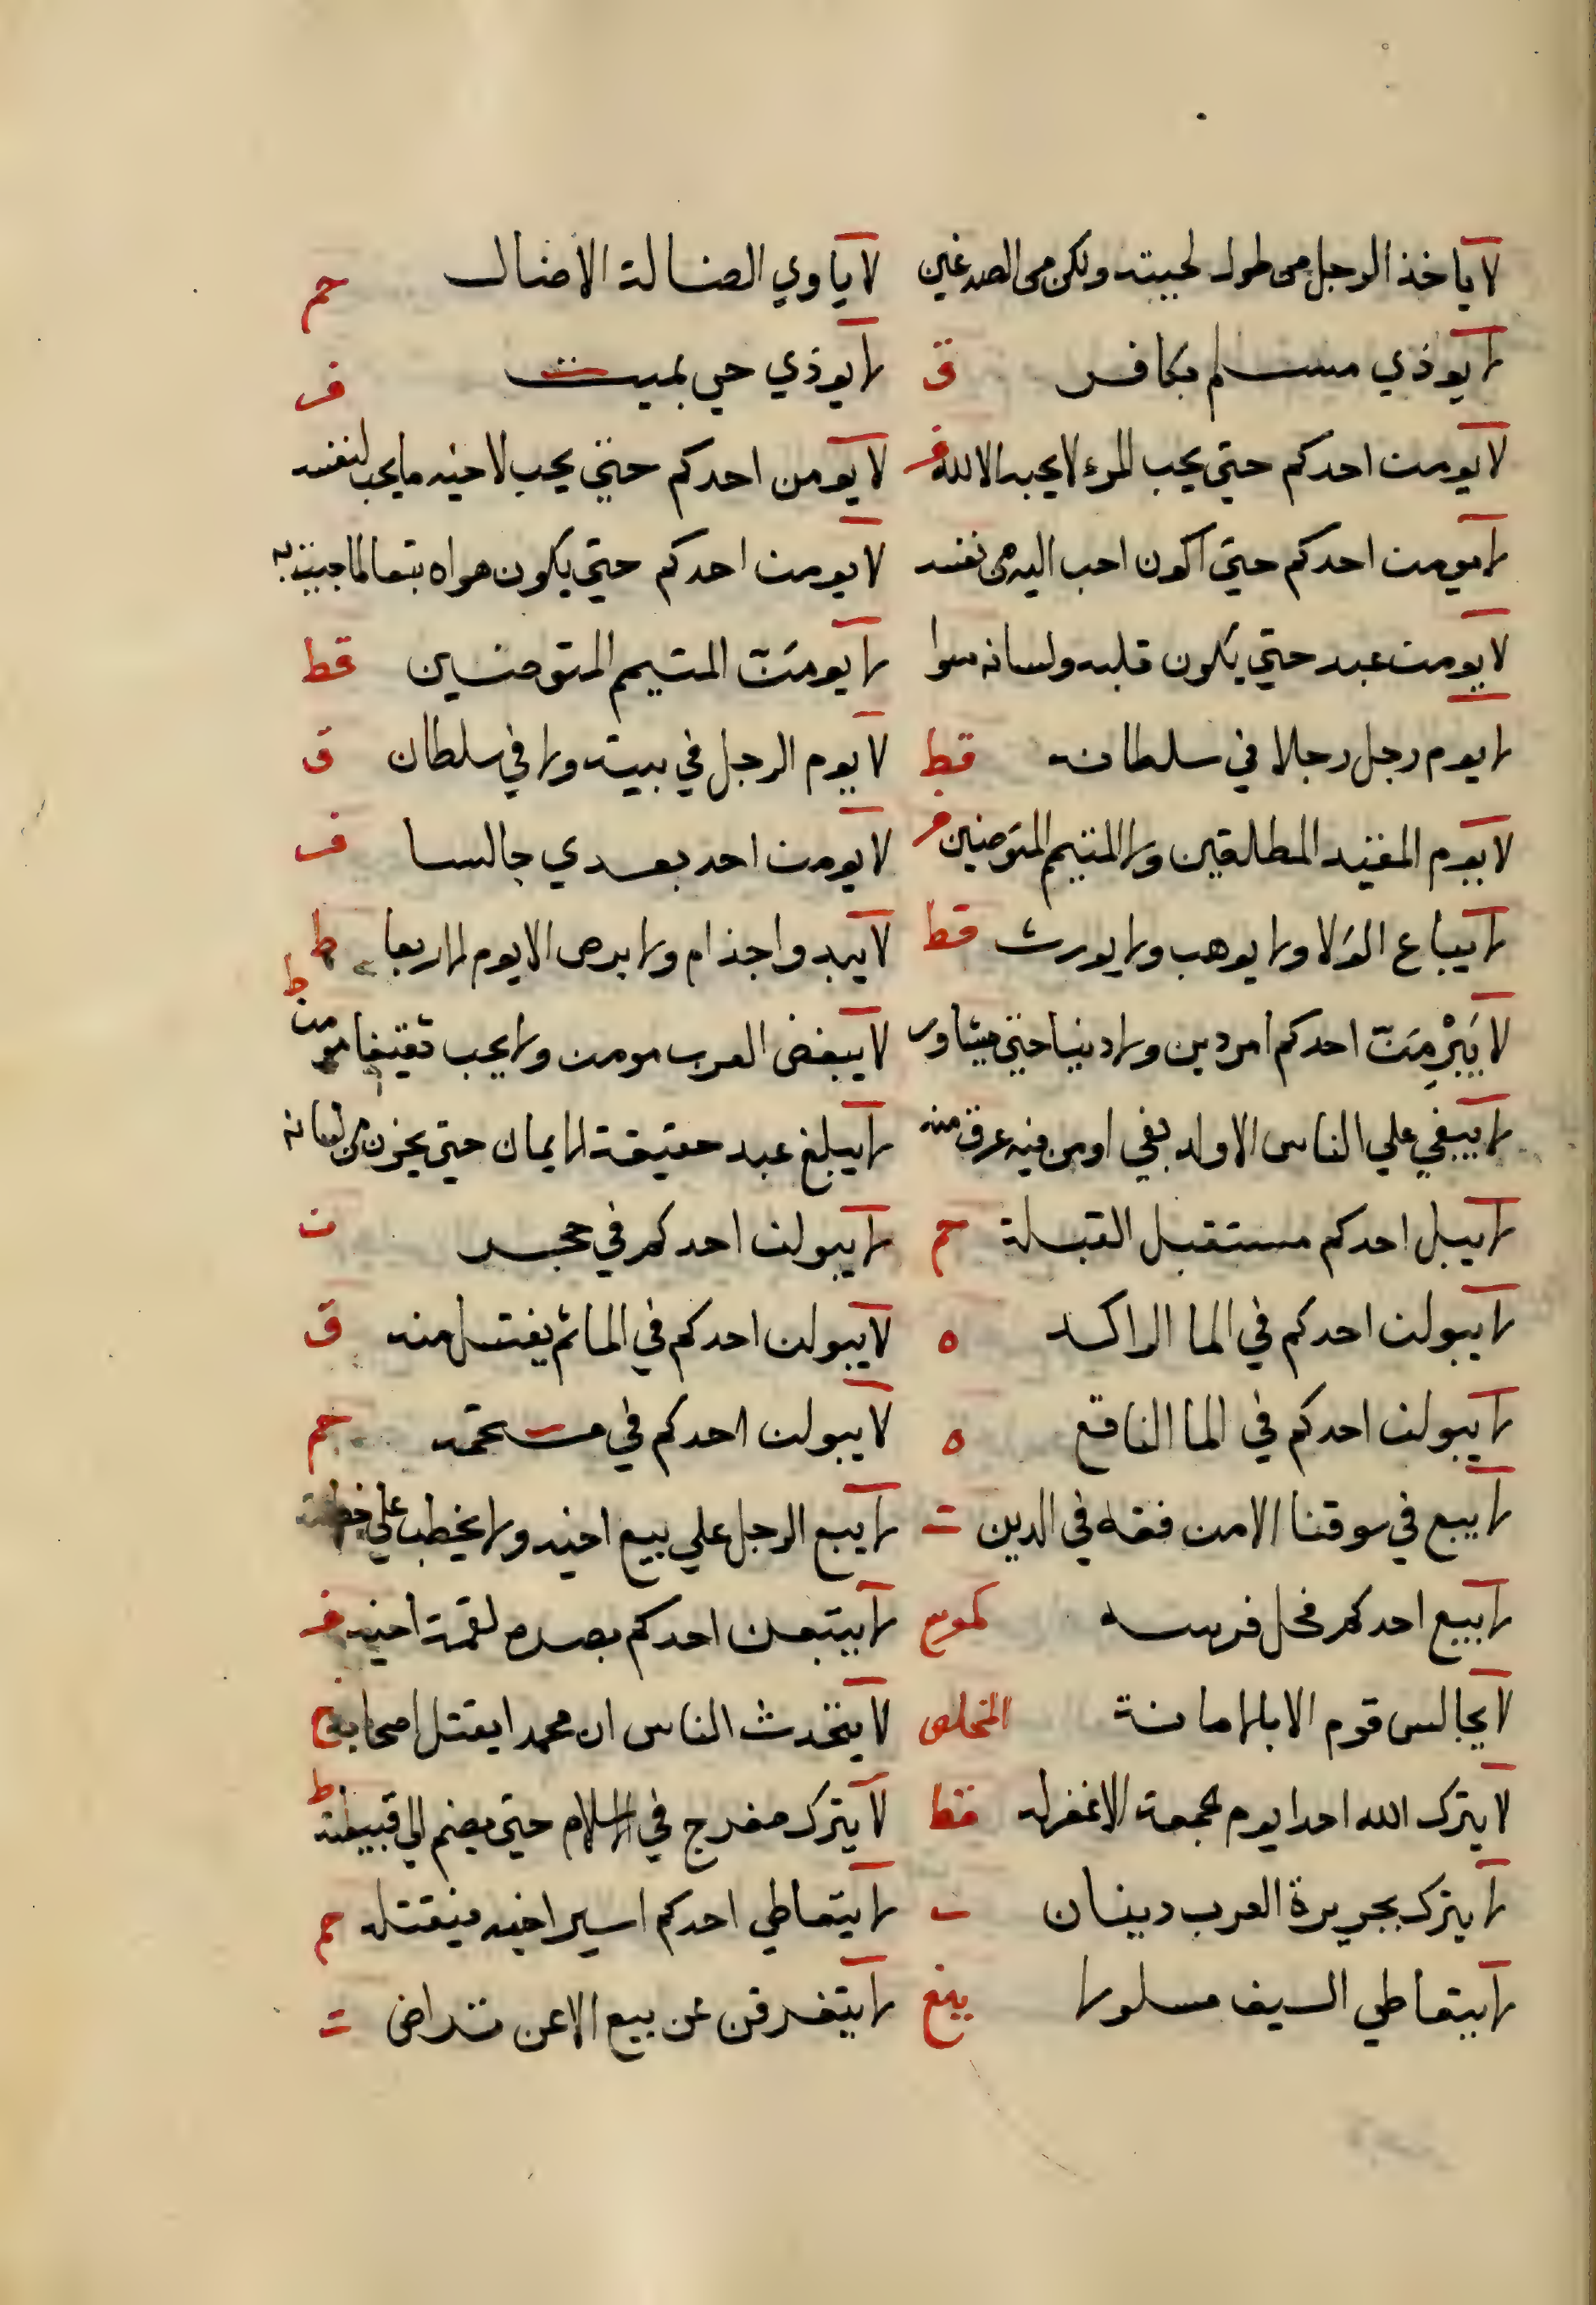 لا ياخذ الرجل من طول لحيته ولكن من الصدغين لا ياوي الضالة الا ضال حم
لا يوذي مسلم بكافر ق لا يوذي حي بميت فر
لا يومن احدكم حتي يحب المرء لا يحبه الا لله فر لا يومن احدكم حتي يحب لاخيه ما يحب لنفسه
لا يومن احدكم حتي اكون احب اليه من نفسه لا يومن احدكم حتي يكون هواه تبعا لما جيت به
لا يومن عبد حتي يكون قلبه ولسانه سوا لا يومَنّ المتيمم المتوضين قط
لا يوم رجل رجلا في سلطانه قط لا يوم الرجل في بيته ولا في سلطان ق
لا يوم المقيد المطلقين ولا المتيمم المتوضين فر لا يومن احد بعدي جالسا فر
لا يباع الولا ولا يوهب ولا يورث قط لا يبدوا جذام ولا برص الا يوم الاربعا ط
لا يَبْرِمَنّ احدكم امر دين ولا دنيا حتي يشاور لا يبغض العرب مومن ولا يحب ثقيفا مومن ط
لا يبغي علي الناس الا ولد بغي او من فيه عرق منه لا يبلغ عبد حقيقة الايمان حتي يخزن من لسانه
لا يبل احدكم مستقبل القبلة حم لا يبولن احدكم في حجر ن
لا يبولن احدكم في الما الراكد ه لا يبولن احدكم في الما ثم يغتسل منه ق
لا يبولن احدكم في الما الناقع ه لا يبولن احدكم في مستحمه حم
لا يبع في سوقنا الا من فقه في الدين ت لا يبع الرجل علي بيع اخيه ولا يخطب علي خطبته
لا يبيع احدكم فحل فرسه لا يتبعن احدكم بصره لقمة اخيه فر
لا يجالس قوم الا بالامانة المخلص لا يتحدث الناس ان محمدا يقتل اصحابه
لا يترك الله احدا يوم الجمعة الا غفر له خط لا يترك مفرج في الاسلام حتي يضم الي قبيلته ط
لا يترك بجزيرة العرب دينان لا يتعاطي احدكم اسير اخيه فيقتله حم
لا يتعاطي السيف مسلولا بغ لا يتفرقن عن بيع الا عن تراض ت